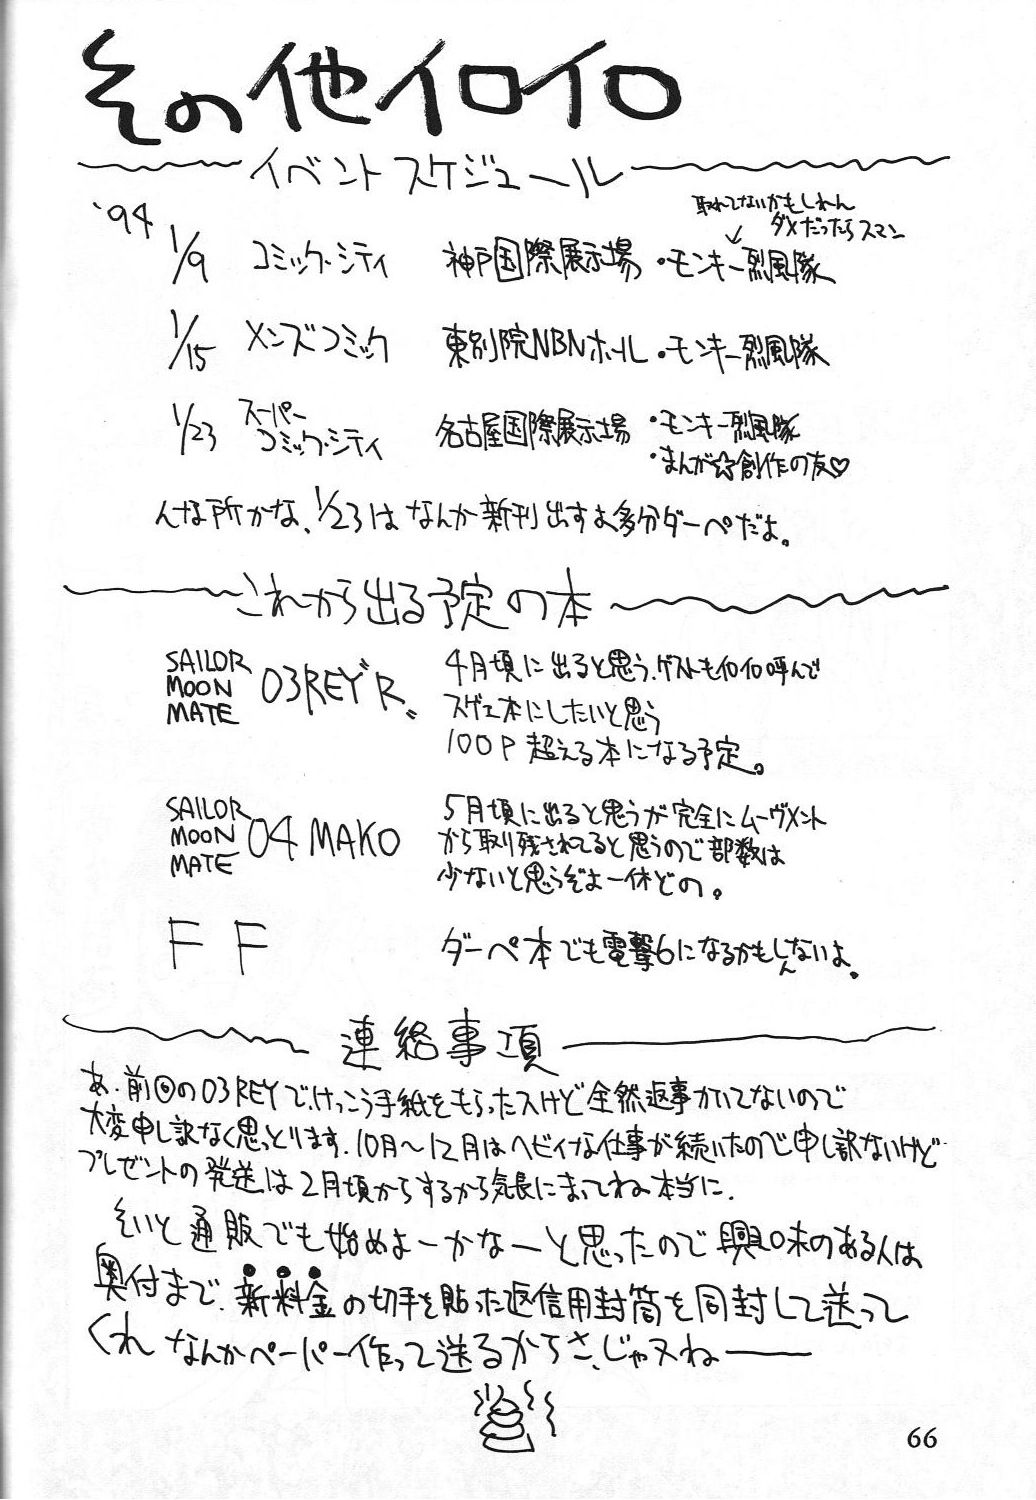 その他イロイロ
イベントスケジュール
'94
取れてないかもしれん
ダメだったらスマン
1/9 コミック・シティ 神戸国際展示場 ・モンキー烈風隊
1/15 メンズコミック 東別院NBNホール ・モンキー烈風隊
1/23 スーパーコミック・シティ 名古屋国際展示場 ・モンキー烈風隊
・まんが☆創作の友♡
んな所かな、1/23はなんか新刊出すよ多分ダーペだよ。
これから出る予定の本
SAILOR MOON MATE 03REY"R〟 4月頃に出ると思う、ゲストもイロイロ呼んで
スゲェ本にしたいと思う
100P超える本になる予定。
SAILOR MOON MATE 04 MAKO 5月頃に出ると思うが完全にムーヴメント
から取り残されてると思うので部数は
少ないと思うぞよ一休どの。
FF ダーペ本でも電撃6になるかもしんないよ。
連絡事項
あ、前回の03REYで、けっこう手紙をもらったスけど全然返事かいてないので
大変申し訳なく思っとります、10月〜12月はヘビィな仕事が続いたので申し訳ないけど
プレゼントの発送は2月頃からするから気長にまっててね本当に、
そいと通販でも始めよーかなーと思ったので興味のある人は、
奥付まで、新料金の切手を貼った返信用封筒を同封して送って
くれ なんかペーパー作って送るからさ、じゃヌね――
66